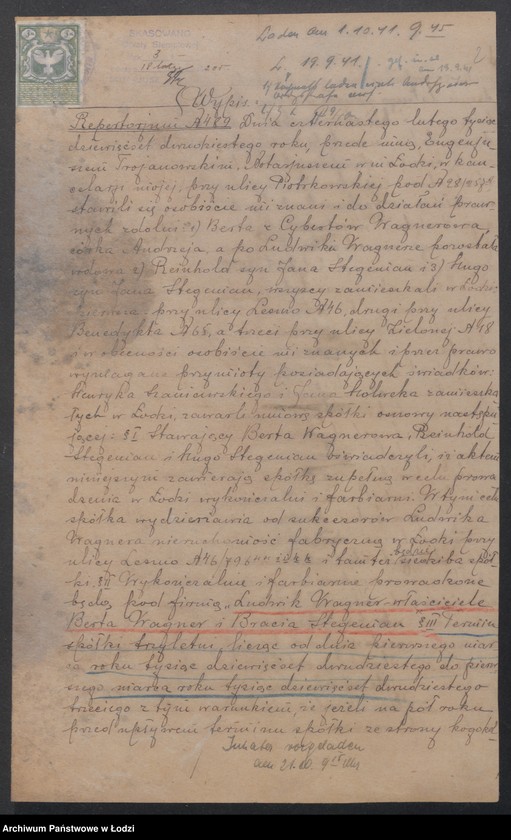 SKASOWANO
Loden am 1.10.41. 9.45
3
18
19.9.41.
Wypis.
Repertorjum № 489 Dnia czternastego lutego tysiąc
dziewięćset dwudziestego roku, przede mną, Eugenju-
szem Trojanowskim, Notarjuszem w m. Łodzi, w kan-
celarji mojej, przy ulicy Piotrkowskiej pod №
stawili się osobiście mi znani i do działań praw-
nych zdolni: 1) Berta z Cybertów Wagnerowa,
córka Andrzeja, a po Ludwiku Wagnerze pozostała
wdowa 2) Reinhold syn Jana Stegeman i 3) Hugo
syn Jana Stegeman, wszyscy zamieszkali w Łodzi
pierwsza przy ulicy Leszno № 46, drugi przy ulicy
Benedykta № 65, a trzeci przy ulicy Zielonej № 48
i w obecności osobiście mi znanych i przez prawo
wymagane przymioty posiadających świadków:
Henryka i Jana zamieszka-
łych w Łodzi, zawarli umowę spółki osnowy następu-
jącej: § I Stawający Berta Wagnerowa, Reinhold
Stegeman i Hugo Stegeman oświadczyli, iż aktem
niniejszym zawierają spółkę zupełną w celu prowa-
dzenia w Łodzi wykończalni i farbiarni. W tym celu
spółka wydzierżawia od sukcesorów Ludwika
Wagnera nieruchomość fabryczną w Łodzi przy
ulicy Leszno № 46/796 i tamże będzie siedziba spół-
ki. § II Wykończalnia i farbiarnia prowadzone
będą pod firmą „Ludwik Wagner-właściciele
Berta Wagner i Bracia Stegeman § III Termin
spółki trzyletni, licząc od dnia pierwszego mar-
ca roku tysiąc dziewięćset dwudziestego do pierw-
szego marca roku tysiąc dziewięćset dwudziestego
trzeciego z tym warunkiem, że jeżeli na pół roku
przed upływem terminu spółki ze strony kogokol-
vorgeladen
am 21.10. 9 Uhr
Archiwum Państwowe w Łodzi